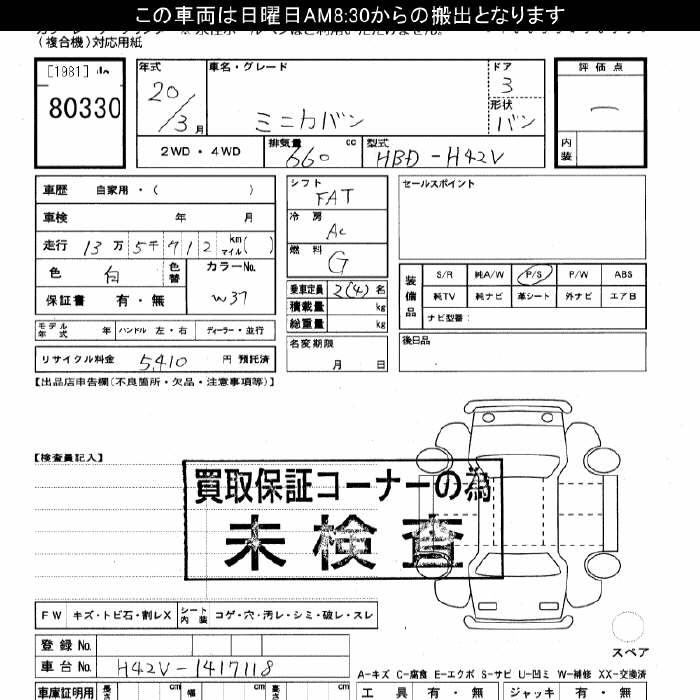 この車両は日曜日AM8:30からの搬出となります
(複合機)対応用紙
[1981]
80330
年式 車名・グレード ドア 評価点
20/3月 ミニカバン 3 一
形状
バン
2WD・4WD 排気量 660 cc 型式 HBD-H42V 内装
車歴 自家用・( )
車検 年 月
走行 13万5千912 km マイル( )
色 白 色替 カラーNo. W37
保証書 有・無
モデル年式 年 ハンドル 左・右 ディーラー・並行
リサイクル料金 5,410 円 預託済
シフト FAT
冷房 AC
燃料 G
乗車定員 2(4)名
積載量 kg
総重量 kg
名変期限 月 日
セールスポイント
装備品 S/R 純A/W P/S P/W ABS
純TV 純ナビ 革シート 外ナビ エアB
ナビ型番:
後日品
【出品店申告欄(不良箇所・欠品・注意事項等)】
【検査員記入】
買取保証コーナーの為
未検査
FW キズ・トビ石・割レX シート内装 コゲ・穴・汚レ・シミ・破レ・スレ
スペア
登録No.
車台No. H42V-1417118
A-キズ C-腐食 E-エクボ S-サビ U-凹ミ W-補修 XX-交換済
車庫証明用 長さ cm 幅 cm 高さ cm 工具 有・無 ジャッキ 有・無